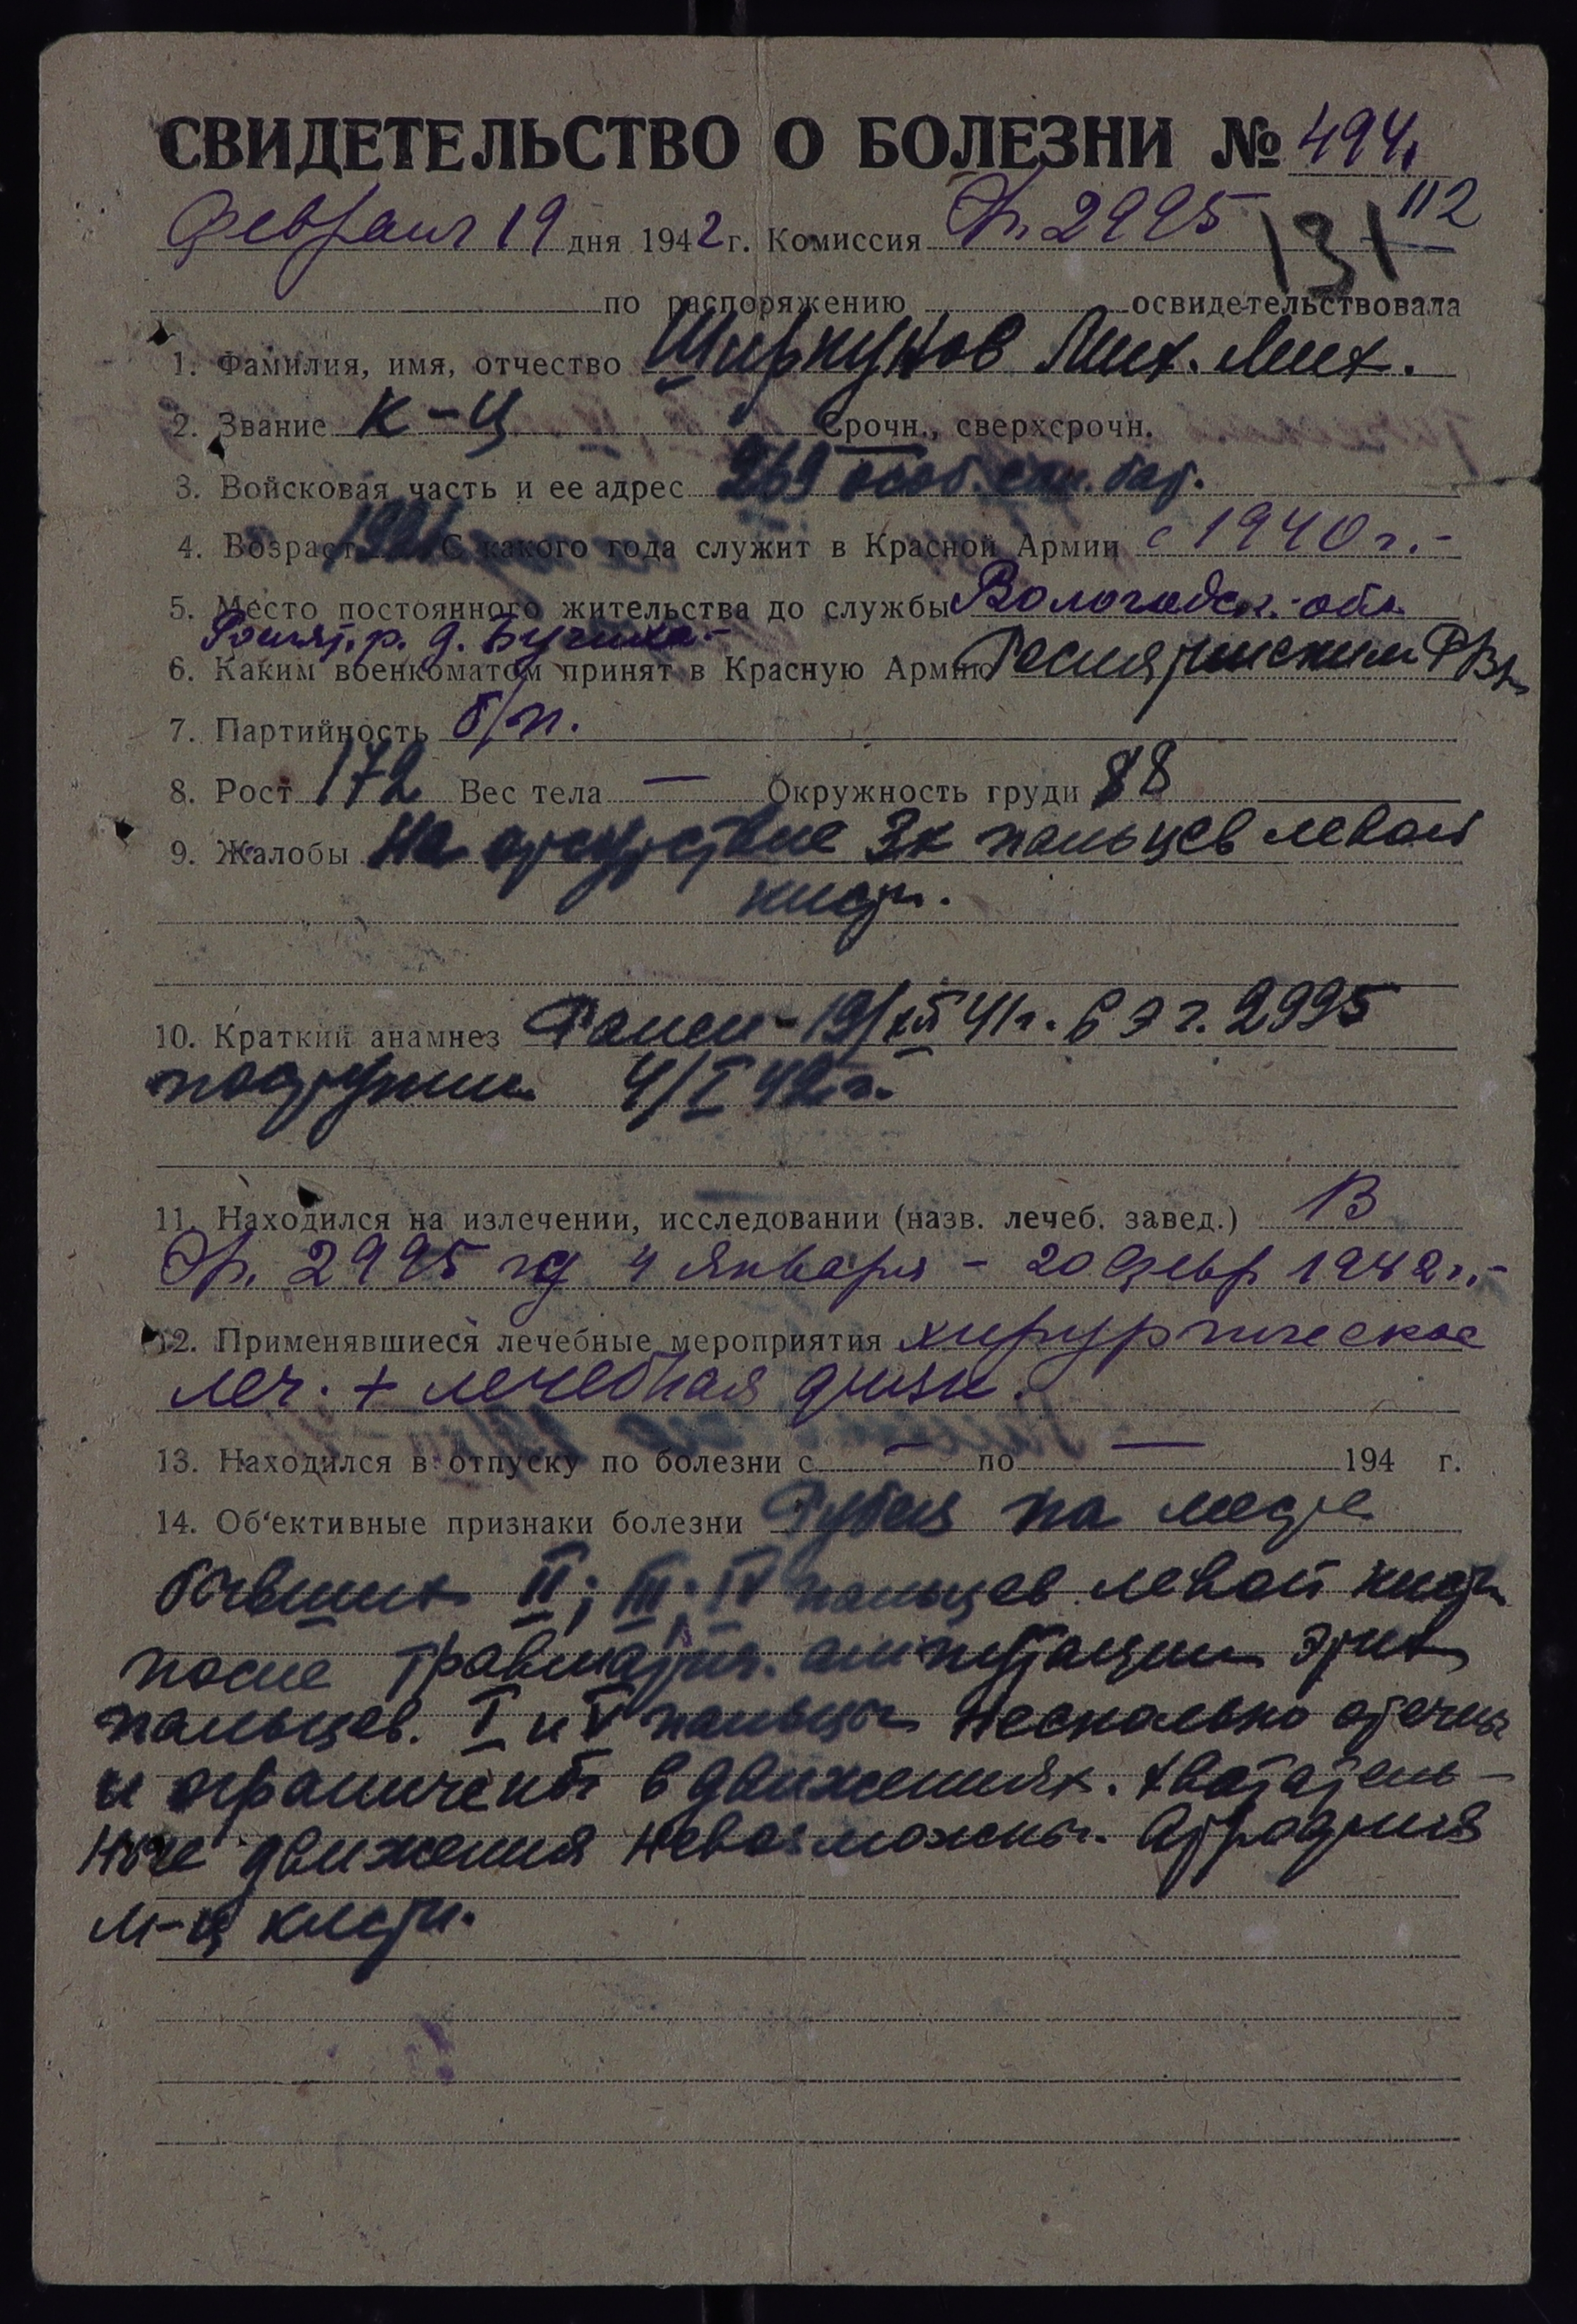 СВИДЕТЕЛЬСТВО О БОЛЕЗНИ № 494
112
Февраля 19 дня 1942 г. Комиссия Эг. 2995
131
по распоряжению освидетельствовала
1. Фамилия, имя, отчество Ширкунов Мих. Мих.
2. Звание К-ц Срочн., сверхсрочн.
3. Войсковая часть и ее адрес 269 особ. бат.
4. Возраст 1921 С какого года служит в Красной Армии с 1940 г.-
5. Место постоянного жительства до службы Вологодск. обл.
Рослят. р. д.
6. Каким военкоматом принят в Красную Армию Рослятинским РВК
7. Партийность б/п.
8. Рост 172 Вес тела — Окружность груди 88
9. Жалобы На отсутствие 3х пальцев левой
кисти.
10. Краткий анамнез Ранен - 19/XII 41 г. в эг. 2995
поступил 4/I 42 г.
11. Находился на излечении, исследовании (назв. лечеб. завед.) В
Эг. 2995 4 января - 20 февр 1942 г.-
12. Применявшиеся лечебные мероприятия хирургическое
леч. + лечебная физк.
13. Находился в отпуску по болезни с — по — 194 г.
14. Об'ективные признаки болезни Рубец на месте
бывших II; III; IV пальцев левой кисти
после травматич. ампутации этих
пальцев. I и V пальцы несколько отечны
и ограничены в движениях. Хвататель-
ные движения невозможны. Атрофия
м-ц кисти.